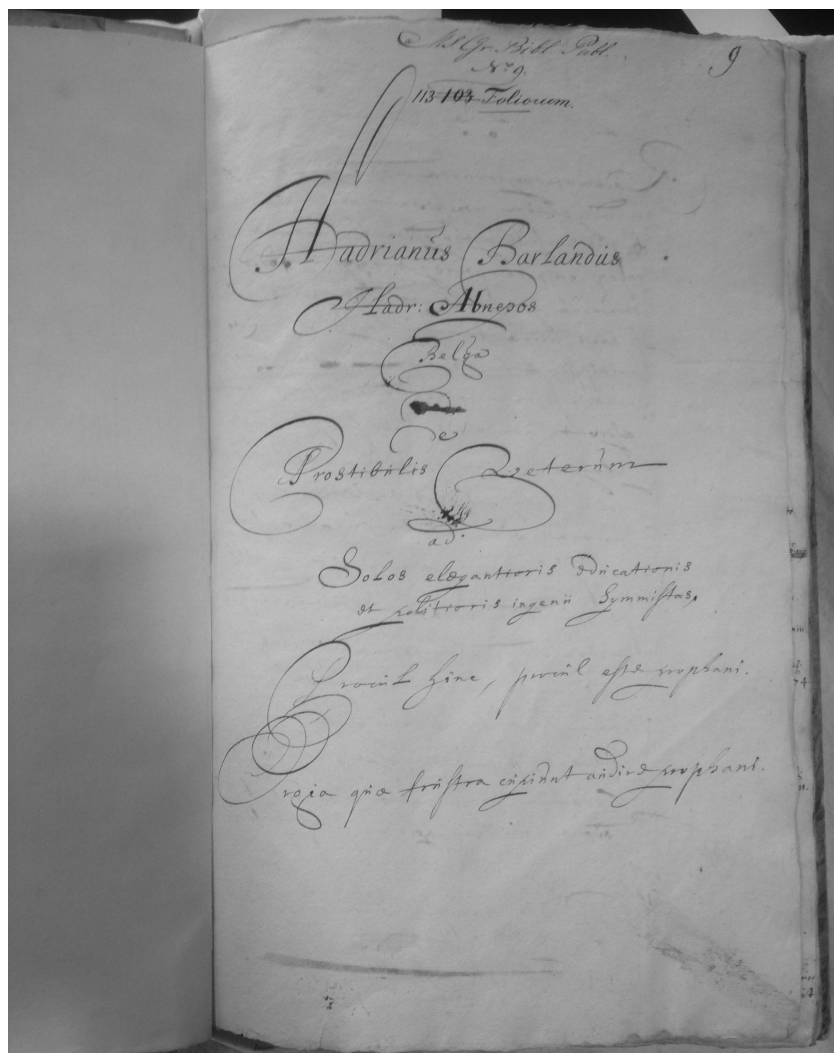 MS Gr. Bibl. Publ. 9
No 9.
113 103 Foliorum.
Hadrianus Barlandus
Hadr: Abnepos
Belga
De
Prostibulis Veterum
ad.
Solos elegantioris educationis
et politioris ingenii Symmistas,
Procul hinc, procul este prophani.
quæ frustra cupiunt audire prophani.